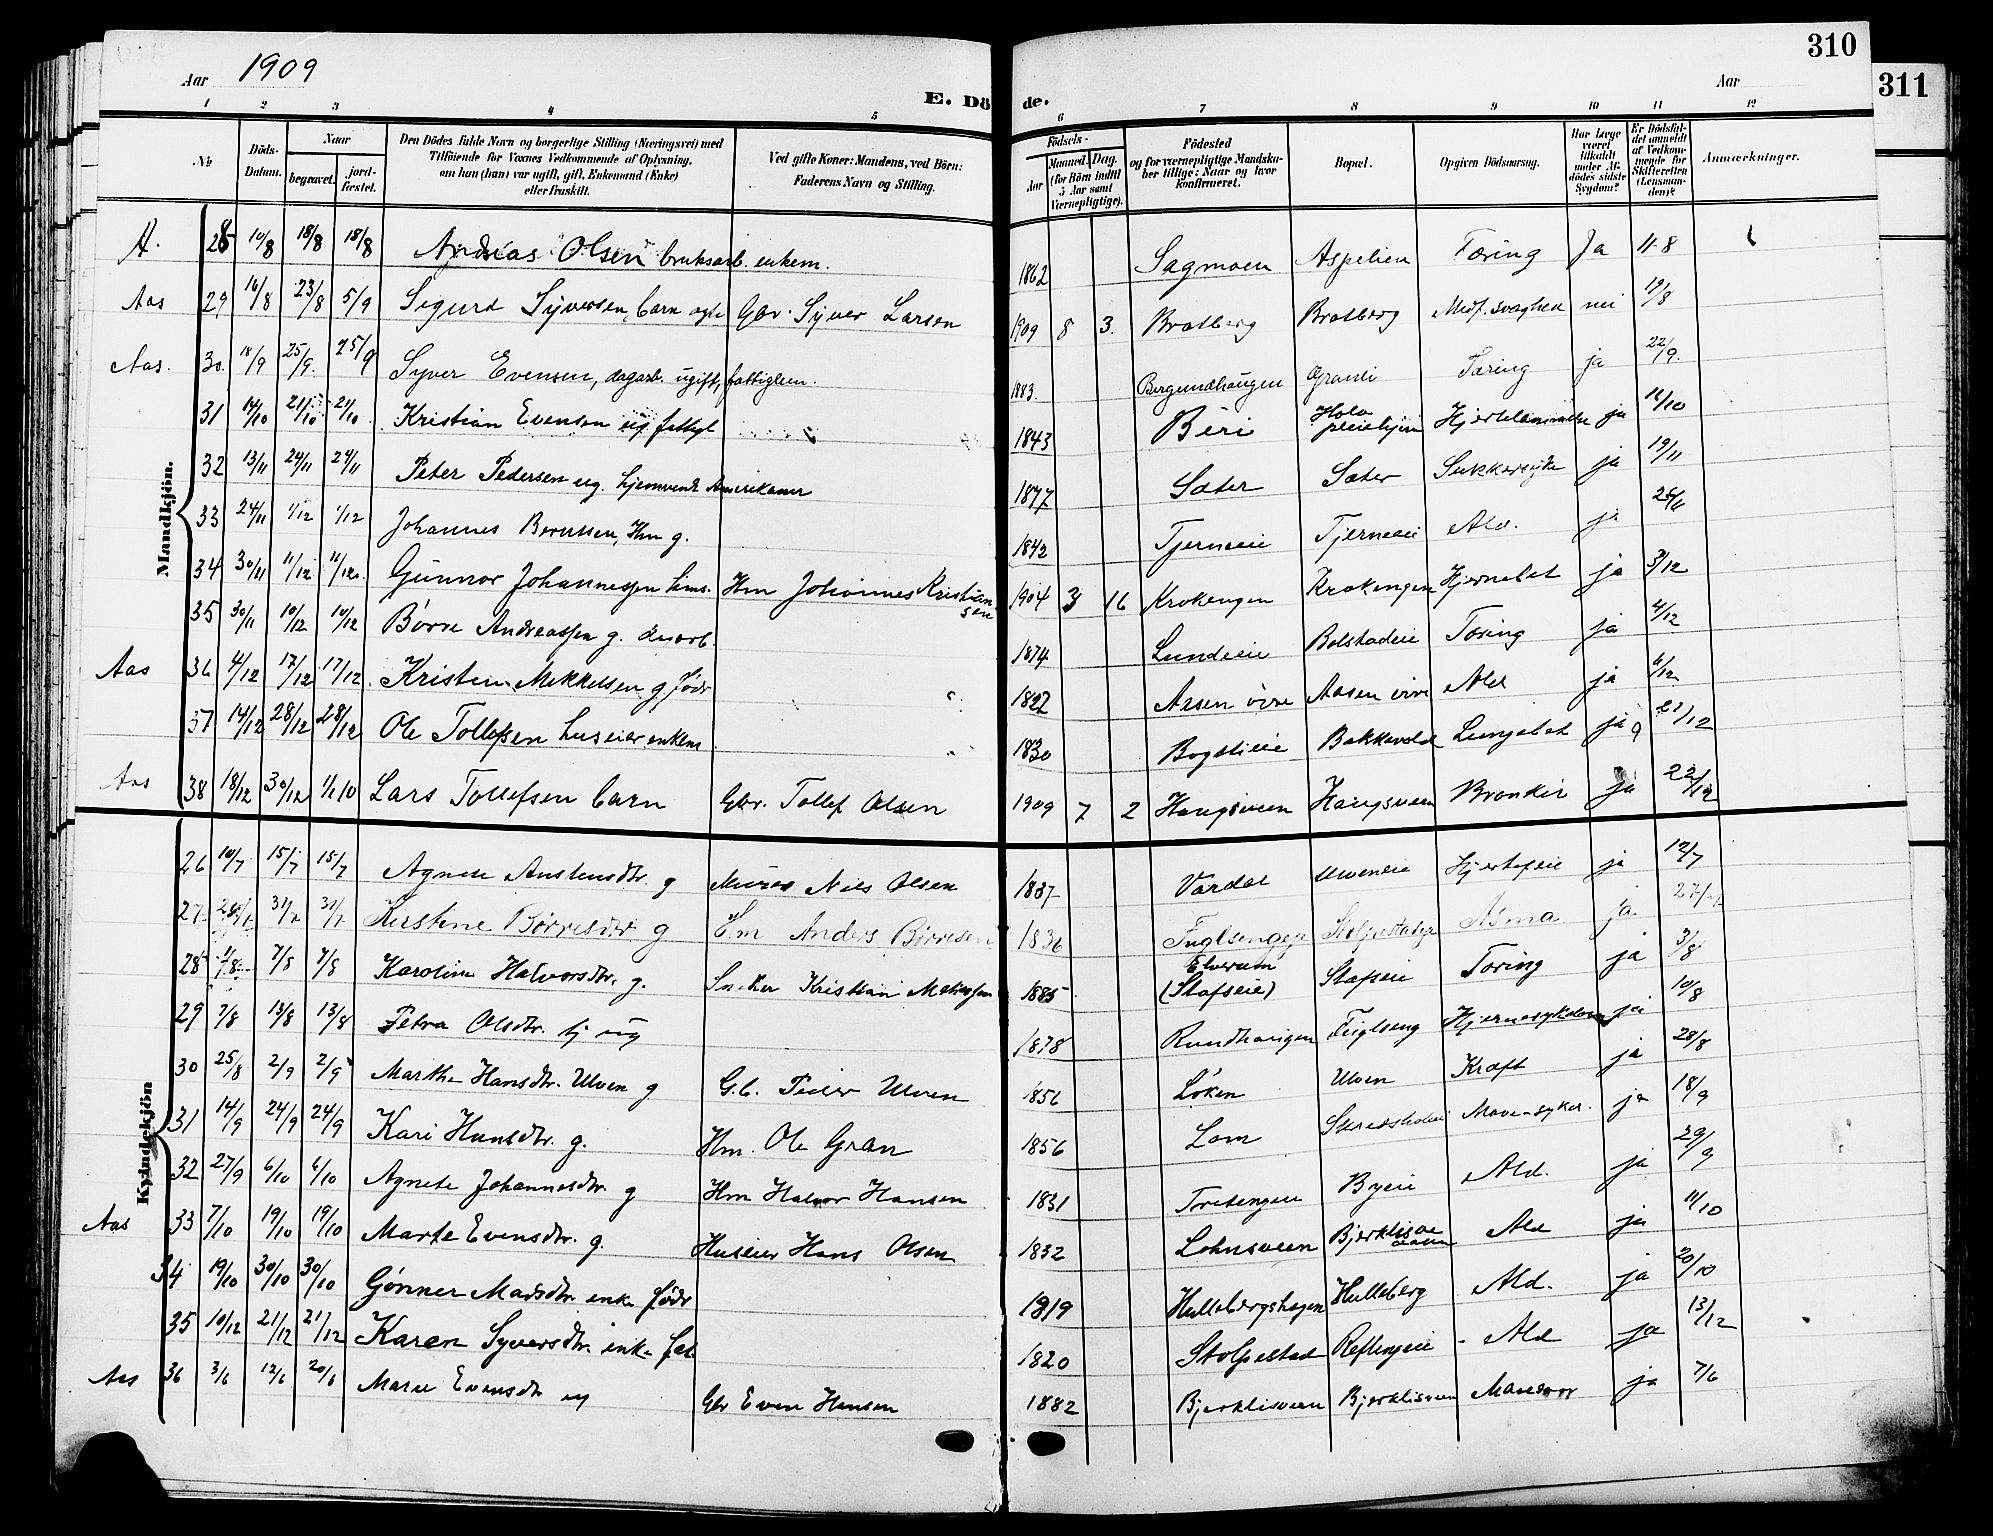 310
311
Aar 1909
Aar
E. Dö de.
1 2 3 4 5 6 7 8 9 10 11 12
No
Döds-Datum.
Naar
begravet.
jord-fæstet.
Den Dödes fulde Navn og borgerlige Stilling (Næringsvei) med Tilföiende for Voxnes Vedkommende af Oplysning, om han (hun) var ugift, gift, Enkemand (Enke) eller fraskilt.
Ved gifte Koner: Mandens, ved Börn: Faderens Navn og Stilling.
Födsels-
Aar
Maaned. Dag. (for Börn indtil 5 Aar samt Værnepligtige).
Födested og for værnepligtige Mandskaber tillige: Naar og hvor konfirmeret.
Bopæl.
Opgiven Dödsaarsag.
Har Læge været tilkaldt under Afdödes sidste Sygdom?
Er Dödsfaldet anmeldt af Vedkommende for Skifteretten (Lensmanden)?
Anmærkninger.
Mandkjön.
A. 28 10/8 18/8 18/8 Andreas Olsen bruksarb. enkem. 1862 Sagmoen Aspelien Tæring Ja 11-8
Aas 29 16/8 23/8 5/9 Sigurd Syversen, barn ægte Gbr. Syver Larsen 1909 8 3. Bratberg Bratberg Medf. svaghed nei 19/8
Aas. 30. 18/9 25/9. 25/9 Syver Evensen, dagarb. ugift, fattiglem. 1883. Bergundhaugen Grandi Tæring ja 22/9.
31 14/10 21/10 21/10 Kristian Evensen ug fattigl 1843 Biri Holo pleiehjem ja 16/10
32 13/11 24/11 24/11 Peter Pedersen ug. hjemvendt Amerikaner 1877 Sæter Sæter Sukkersyke ja 19/11
33 24/11 1/12 1/12 Johannes Berntsen, Hm g. 1842 Tjerneeie Tjerneeie Ald. ja
34 30/11 11/12 11/12. Gunnar Johannessen Hm Johannes Kristiansen 1904 3 16 Krokengen Krokengen Hjernebet ja 3/12
35 30/11 10/12 10/12 Børre Andreassen g. 1874 Lundeie Bolstadeie Tæring ja 4/12
Aas 36 4/12 17/12 17/12 Kristen Mikkelsen g. föder 1822 Aasen övre Aasen övre Ald ja 6/12
37 14/12 28/12 28/12 Ole Tollefsen huseier enkem 1830 Bogstieie Bakkevold Lungebet ja 21/12
Aas 38 18/12 30/12 1/1 10 Lars Tollefsen barn Gbr. Tollef Olsen 1909 7 2 Haugsveen Haugsveen Bronkit Ja 22/12
Kvindekjön
26 10/7 15/7 15/7 Agnete Anstensdtr. g Murer Nils Olsen 1837 Vardal Ulveneie Hjertefeil ja 12/7
27 31/7 31/7 Kirstine Børresdtr g Hm Anders Børresen 1836 Fuglsengeie Stolpestadeie Asma ja
28 1/8 7/8 7/8 Karoline Halvorsdtr. g. Snekker Kristian 1885 Elverum (Stafseie) Stafseie Tæring ja 3/8
29 7/8 13/8 13/8 Petra Olsdtr. tj ug 1878 Rundhaugen Fuglseng Hjernesykdom ja 10/8
30 25/8 2/9 2/9 Marthe Hansdtr. Ulven g G.b. Peder Ulven 1856 Løken Ulven Kræft ja 28/8
31 14/9 24/9 24/9 Kari Hansdtr. g. Hm. Ole Gran 1856 Lom Mavesyker. ja 18/9
32 27/9 6/10 6/10 Agnete Johannesdtr. g Hm Halvor Hansen 1831 Tretengen Byeie Ald. ja 29/9
Aas 33 7/10 19/10 19/10 Marte Evensdtr. g. Huseier Hans Olsen 1832 Lohnsveen Ald ja 11/10
34 19/10 30/10 30/10 Gönner Madsdtr. enke föder 1819 Hullebergshagen Hulleberg Ald. ja 20/10
35 10/12 21/12 21/12 Karen Syversdtr. enke 1820 Stolpestad Reflengeie Ald ja 13/12
Aas 36 3/6 12/6 20/6 Marie Evensdtr ug Gbr Even Hansen 1882 Bjerklisveen Bjerklisveen Mavesaar ja 7/6